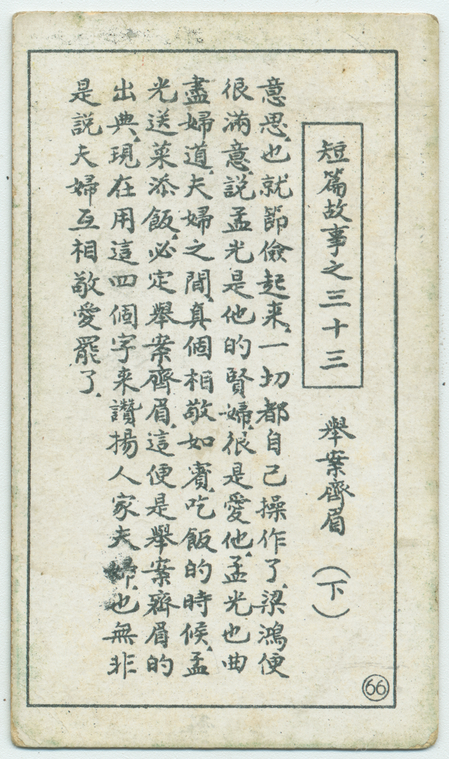 短篇故事之三十三
舉案齊眉（下）
意思、也就節儉起來、一切都自己操作了、梁鴻便
很滿意、說孟光是他的賢婦、很是愛他、孟光也曲
盡婦道、夫婦之間、真個相敬如賓、吃飯的時候、孟
光送菜添飯、必定舉案齊眉、這便是舉案齊眉的
出典、現在用這四個字來讚揚人家夫婦、也無非
是說夫婦互相敬愛罷了、
66